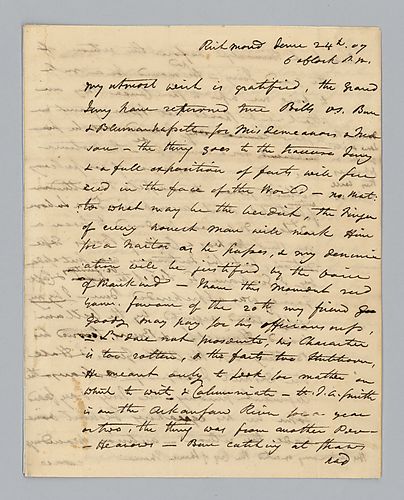 Richmond June 24th. 07
6 oClock P.M.
my utmost wish is gratified, the Grand
Jury have returned true Bills vs. Burr
& Blennerhassett for Misdemeanors & Trea-
son — the thing goes to the Jury
& a full exposition of facts will find
in the face of the World — no mat-
ter what may be the verdict, the finger
of every honest man will mark Him
for a Traitor as he passes, & my denunci-
ation will be justified by the voice
of Mankind — I have this Moment recd
yours favour of the 20th my friend
may pay for his officiousness,
Bo dare not prosecute, his Character
is too rotten, & the facts too stubborn,
He meant only to look for matter on
which to write & Calumniate — T. A. Smith
is on the Arkansaw River for a year
or two, the thing was from another Per-
— Hearsay — Burr catching at straws,
had